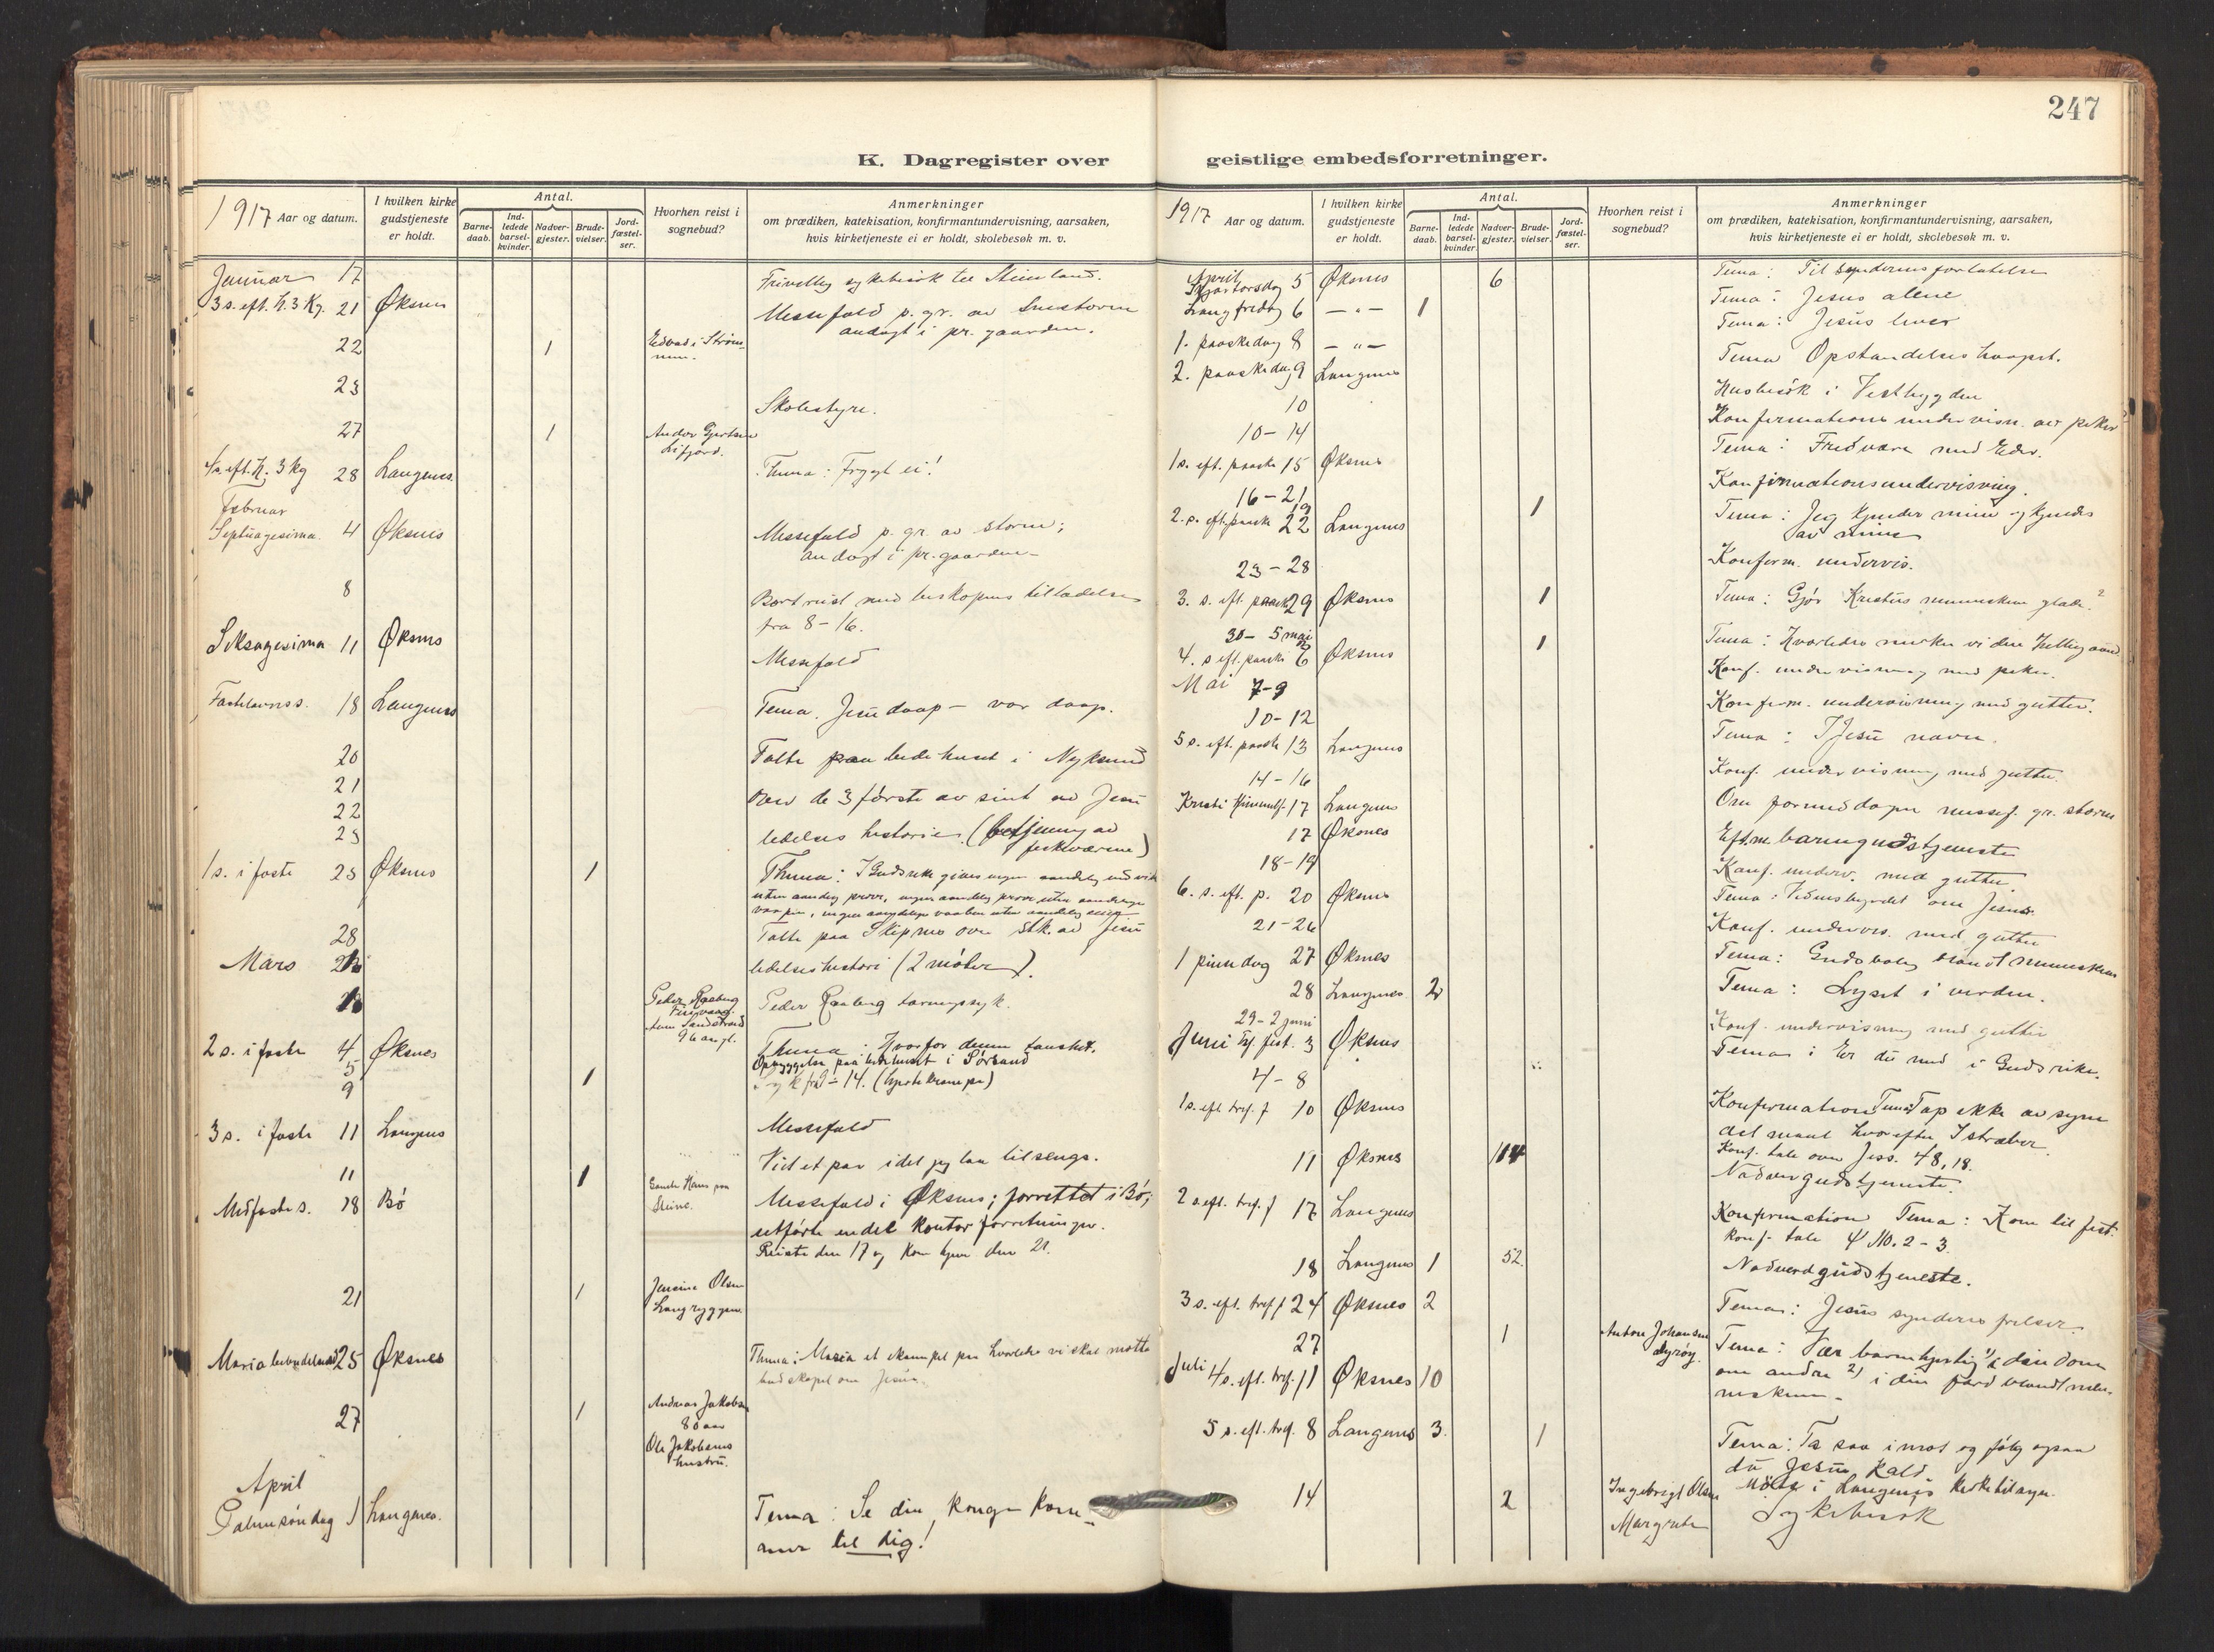 247
K. Dagregister over geistlige embedsforretninger.
1917 Aar og datum.
I hvilken kirke gudstjeneste er holdt.
Antal.
Barne-daab.
Ind-ledede barsel-kvinder.
Nadver-gjester.
Brude-vielser.
Jord-fæstel-ser.
Hvorhen reist i sognebud?
Anmerkninger
om prædiken, katekisation, konfirmantundervisning, aarsaken,
hvis kirketjeneste ei er holdt, skolebesøk m. v.
Januar 17
3 s. eft. h. 3 kg. 21 Øksnes Messefald p. gr. av snestorm
andagt i pr. gaarden.
22 1
23 Skolestyre.
27 1
28 Langenes. Thema: Frygt ei!
Februar
Septuagesima 4 Øksnes Messefald p. gr. av storm;
andagt i pr. gaarden
8 Bortreist med biskopens tilladelse
fra 8-16.
Seksagesima 11 Øksnes Messefald
Fastelavnss. 18 Langenes Tema. Jesu daap - vor daap.
20 Talte paa bedehuset i Nyksund
21 over de 3 første av sint av Jesu
22 lidelses historie. (betjening av
23 fiskeværene)
1 s. i faste 25 Øksnes 1
28 Talte paa Skipnes over stk. av Jesu
Mars lidelseshistorie (2 møter).
2 s. i faste 4 Øksnes
5
9 1
3 s. i faste 11 Langenes Messefald
11 1 Viet et par idet jeg laa tilsengs.
Midfastes. 18 Bø Messefald i Øksnes; forrettet i Bø;
utførte endel kontorforretninger.
Reiste den 17 og kom hjem den 21.
21 1 Jensine Olsen
Langryggen
Maria budskabsd 25 Øksnes
budskapet om Jesus.
27 1 Andreas Jakobsen
80 aar
Ole Jakobsens
hustru.
April
Palmesøndag 1 Langenes. Tema: Se din konge kom-
mer til dig!
1917 Aar og datum.
I hvilken kirke gudstjeneste er holdt.
Antal.
Barne-daab.
Ind-ledede barsel-kvinder.
Nadver-gjester.
Brude-vielser.
Jord-fæstel-ser.
Hvorhen reist i sognebud?
Anmerkninger
om prædiken, katekisation, konfirmantundervisning, aarsaken,
hvis kirketjeneste ei er holdt, skolebesøk m. v.
April
Skjærtorsdag 5 Øksnes 6 Tema: Til syndernes forlatelse
Langfredag 6 — " — 1 Tema: Jesus alene
1. paaskedag 8 — " — Tema: Jesus lever
2. paaskedag 9 Langenes Tema Opstandelses haapet.
10 Husbesøk i Vestbygden
10-14 Konfirmations undervisn. av piker
1 s. eft. paaske 15 Øksnes Tema: Fred være med Eder.
16-21 Konfirmationsundervisning.
19 1
2. s. eft. paaske 22 Langenes Tema: Jeg kjender mine og kjendes
av mine
23-28 Konform. undervis.
3. s. eft. paaske 29 Øksnes 1 Tema: Gjør Kristus menneskene glade?
30 - 5 mai
4. s eft. paaske 6 Øksnes 1 Tema: Hvorledes merker vi den Hellig aand
Mai 7-9 Konf. undervisning med piker.
10-12 Konfirm. undervisning med gutter.
5 s. eft. paaske 13 Langenes Tema: I Jesu navn.
14-16 Konf. undervisning med gutter.
Kristi Himmelf. 17 Langenes Om formiddagen messef. gr. storm
17 Øksnes Eftm. barnegudstjeneste
18-19 Konf. underv. med gutter.
6. s. eft. p. 20 Øksnes Tema: Vidnesbyrdet om Jesus.
21-26 Konf. undervis. med gutter
1 pinsedag 27 Øksnes Tema: Guds bolig blandt menneskene
28 Langenes 2 Tema: Lyset i verden.
29-2 juni Konf. undervisning med gutter
Juni Trf. fest. 3 Øksnes Tema: Er du med i Guds rike.
4-8
1 s. eft tref. f 10 Øksnes Konfirmation Tema: Tap ikke av syne
det maal hvorefter I stræber.
Konf. tale over Jess. 48,18.
11 Øksnes 114 Nadvergudstjeneste.
2 s. eft. tref. f 17 Langenes Konfirmation Tema: Kom til fest.
konf. tale 4 M. 2-3.
18 Langenes 1 52. Nadverdgudstjeneste.
3 s. eft. tref. f 24 Øksnes 2 Tema: Jesus synderes frelser.
27 1 Anton Johansen
Dyrøy.
Juli 4 s. eft. tref. 1 Øksnes 10 Tema: Vær barmhjertig 1) i din dom
om andre 2) i din færd blandt men-
nesker.
5 s. eft. tref. 8 Langenes 3. 1 Tema: Ta imot og følg ogsaa
du Jesu kald
Møte i Langenes kirketilsyn.
14 2 Ingebrigt Olsen
Margrete Sykebesøk